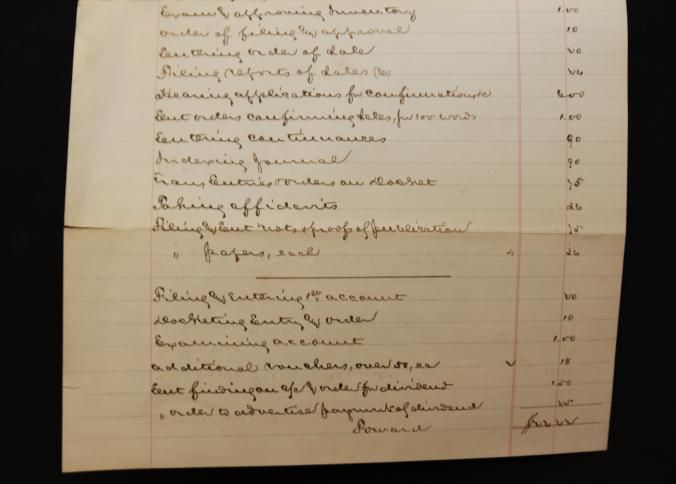 Exam & approving Inventory 1.00
order of filing & approval 10
Entering order of Sale 20
Filing reports of Sales 24
Hearing applications for confirmation, &c 6.00
Ent orders confirming Sales, per 100 words 1.00
Entering continuances 90
Indexing Journal 90
Trans Entries & orders on Docket 75
Taking affidavits 26
Filing & Ent nots. & proof of publication
" papers, each 4 26
Filing & entering 1st account 20
Docketing Entry & order 10
Examining account 1.00
additional vouchers, over 50, ea 18
Ent finding on a/c & order for dividend 1.50
" order to advertise payment of dividend
Forward